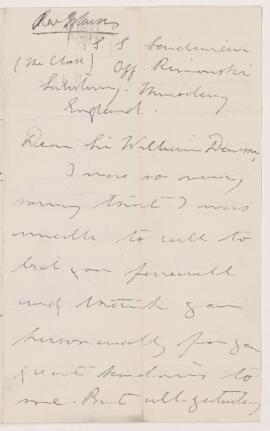 S S Sardinian
(The Close) Off Rimouski
Salisbury. Thursday
England.
Dear Sir William Dawson,
I was so very
sorry that I was
unable to call to
bid you farewell
and thank you
personally for your
great kindness to
me. But all yesterday